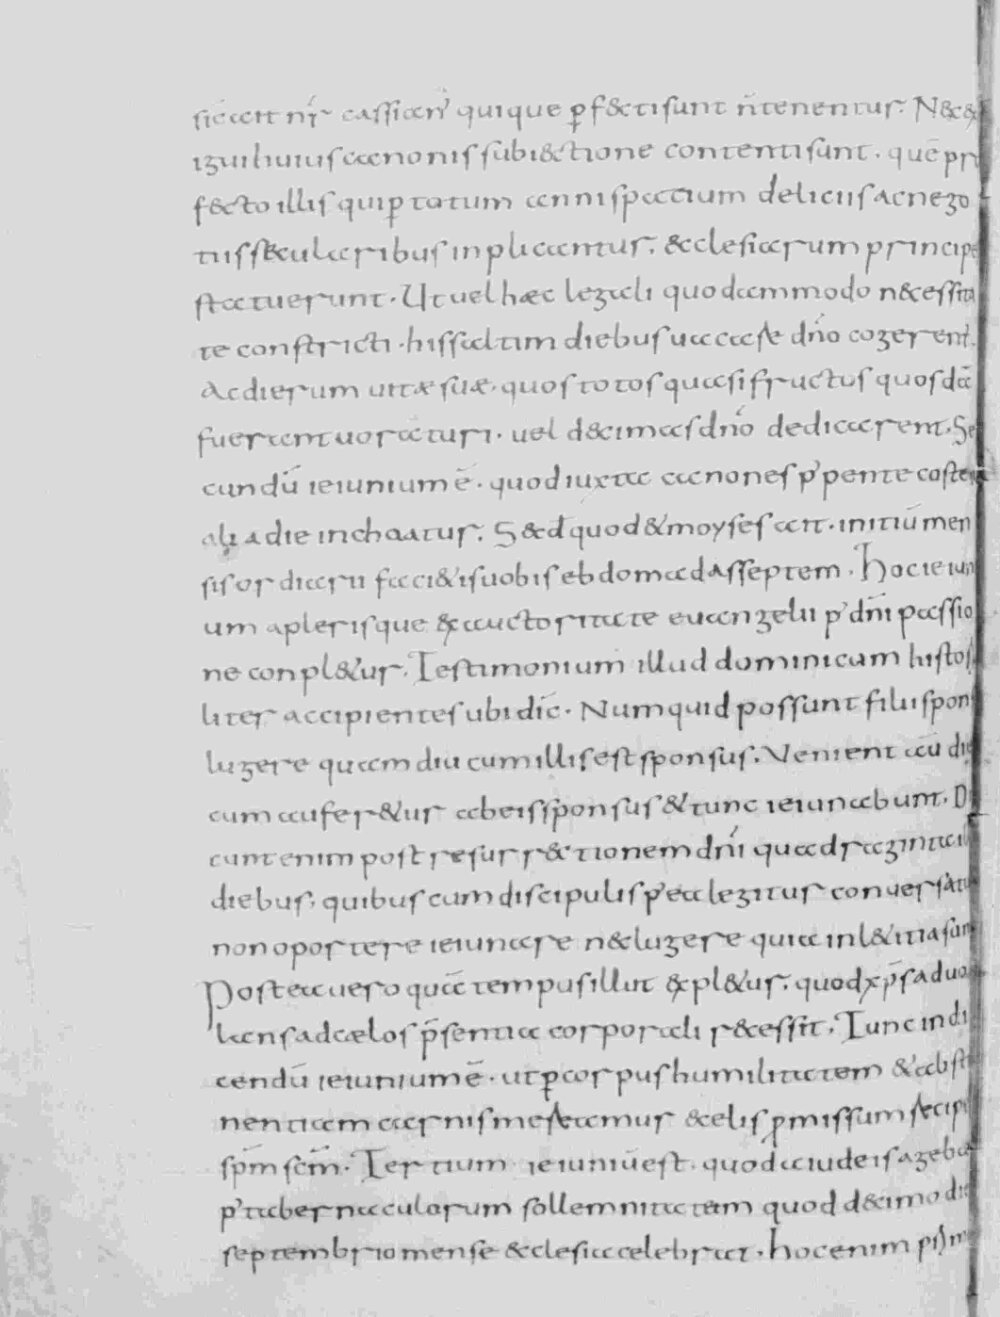 sic ait nr̄ cassian' quique ꝑfecti sunt n̄ tenentur. Nec ex
igui huius canonis subiectione contenti sunt. quē pro
fecto illis qui ꝑ totum anni spatium deliciis ac nego
tiis secularibus inplicantur. ecclesiarum principe
statuerunt. Ut vel hæc legali quodammodo necessita
te constricti. his saltim diebus uacase dn̄o cogerent.
Ac dierum uitæ suæ. quos totos quasi fructus quosdā
fuerant uoraturi. uel decimas dn̄o dedicarent. Se
cundū ieiunium ē. quod iuxta canones p' pentecosten
alia die inchoatur. Sed quod et moyses ait. initiū men
sis ordiarii facietis uobis ebdomadas septem. Hoc ieiuni
um a plerisque ex auctoritate euangelii p' dn̄i passio
ne conpletur. Testimonium illud dominicum histori
liter accipientes ubi dic̄. Numquid possunt filii spon
lugere quamdiu cum illis est sponsus. Venient aū die
cum auferetur ab eis sponsus et tunc ieiunabunt. Di
cunt enim post resurrectionem dn̄i quadraginta
diebus. quibus cum discipulis p'ea legitur conuersatu
non oportere ieiunare nec lugere quia in letitia sun
Postea uero quā tempus illut expletur. quo xp̄s aduo
lans ad cælos p̄sentia corporali recessit. Tunc indi
cendū ieiunium ē. ut ꝑ corpus humilitatem et absti
nentiam carnis mereamur e celis ꝓmissum recipe
sp̄m sc̄m. Tertium ieiuniū est. quod a iudeis ageba
p' tabernaculorum sollemnitatem quod decimo die
septembrio mense ecclesia celebrat. hoc enim